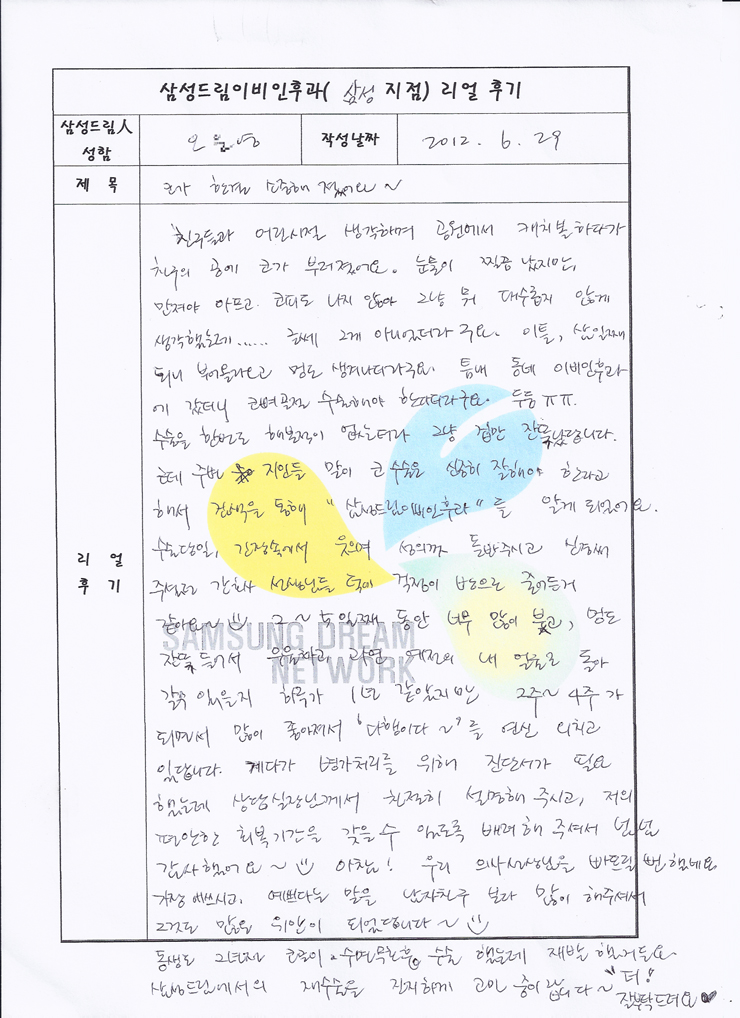 삼성드림이비인후과( 삼성 지점) 리얼 후기
삼성드림人 성함
작성날짜 2012. 6. 29
제 목 코가 한결 소중해 졌어요~
리 얼 후 기
친구들과 어린시절 생각하며 공원에서 캐치볼하다가
친구의 공에 코가 부러졌어요. 눈물이 찔끔 났지만,
만져야 아프고 코피도 나지 않아 그냥 뭐 대수롭지 않게
생각했는데...... 글쎄 그게 아니었더라구요. 이틀, 삼일째
되니 부어올라오고 멍도 생겨나더라구요. 틈내 동네 이비인후과
에 갔더니 코뼈골절 수술해야 한다더라구요. 두둥 ㅠㅠ.
수술을 한번도 해본적이 없는터라 그냥 겁만 잔뜩났답니다.
근데 주변 지인들 말이 코 수술은 신중히 잘해야 한다고
해서 검색을 통해 "삼성드림이비인후과"를 알게 되었어요.
수술당일, 긴장속에서 웃으며 성의껏 돌봐주시고 신경써
주셨던 간호사 선생님들 덕에 걱정이 반으로 줄어든거
같아요~ 2~4일째 동안 너무 많이 붓고, 멍도
잔뜩 들어서 우울하고, 과연 예전의 내 얼굴로 돌아
갈수 있을지 하루가 1년 같았지만 2주~4주가
되면서 많이 좋아져서 '다행이다~'를 연신 외치고
있답니다. 게다가 병가처리를 위해 진단서가 필요
했는데 상담실장님께서 친절히 설명해 주시고, 저의
편안한 회복기간을 갖을수 있도록 배려해 주셔서
감사했어요~ 아참! 우리 의사선생님을 빠뜨릴 뻔 했네요
가장 애쓰시고, 예쁘다는 말을 남자친구 보다 많이 해주셔서
그것도 많은 위안이 되었답니다~
동생도 2년전 코골이·수면무호흡 수술 했는데 재발 했거든요
삼성드림에서의 재수술을 진지하게 고민 중이랍니다~
더! 잘부탁드려요♥
SAMSUNG DREAM
NETWORK